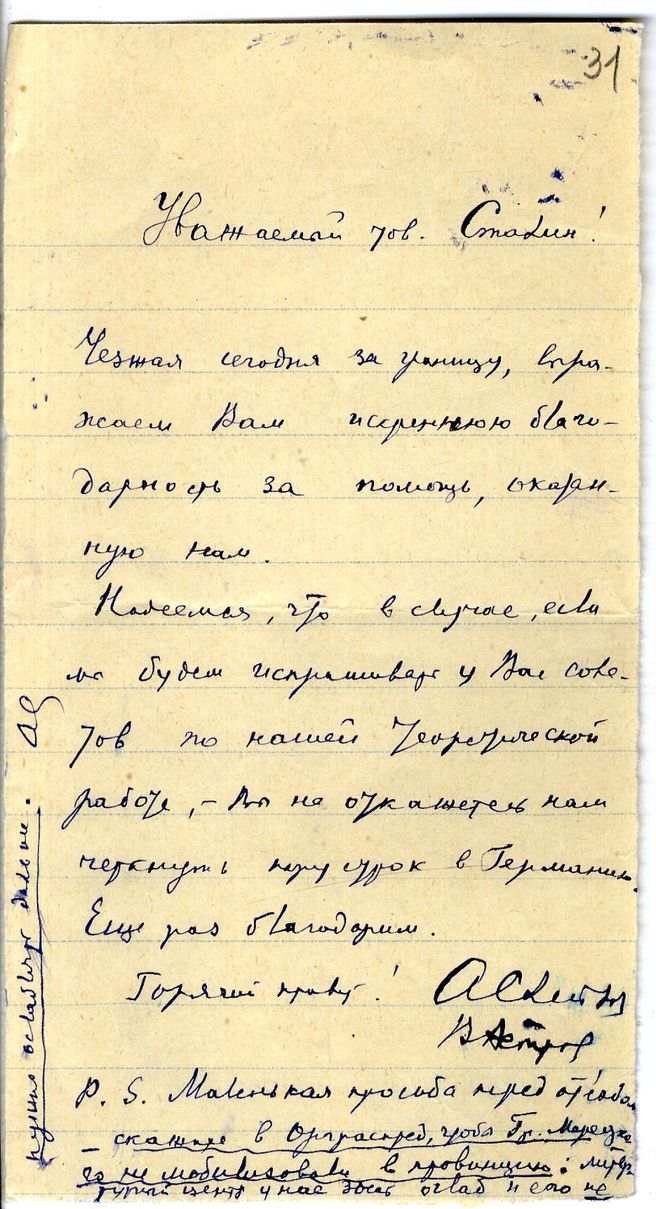 31
Уважаемый тов. Сталин!
Уезжая сегодня за границу, выра-
жаем Вам искреннюю благо-
дарность за помощь, оказан-
ную нам.
Надеемся, что в случае, если
мы будем испрашивать у Вас сове-
тов по нашей теоретической
работе, – Вы не откажетесь нам
черкнуть пару строк в Германию.
Еще раз благодарим.
Горячий привет!
P. S. Маленькая просьба перед отъездом
– скажите в Орграспред, чтобы Гр. Марецко
го не мобилизовали в провинцию:
центр у нас здесь и его не
нужно ослаблять